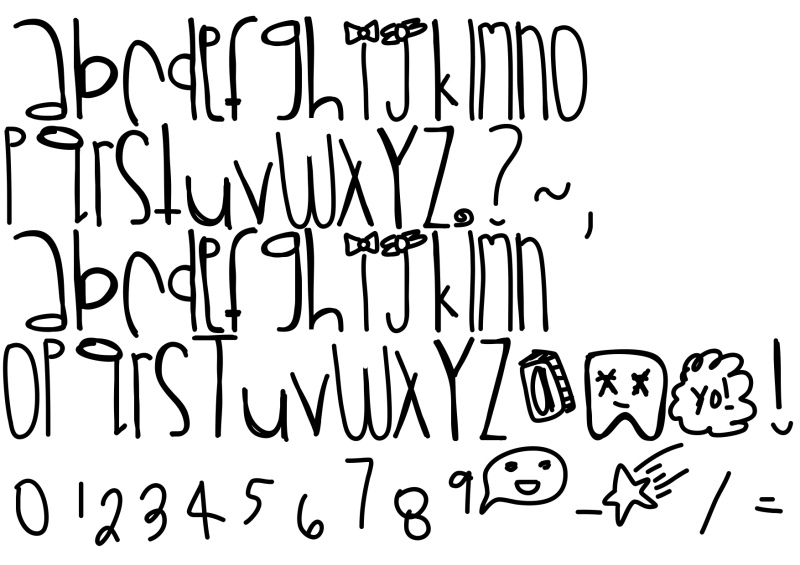 abcdefghijklmno
pqrstuvwxyz.?~,
abcdefghijklmn
opqrsTuvwxyz a Yo! !
0123456789 _ / =